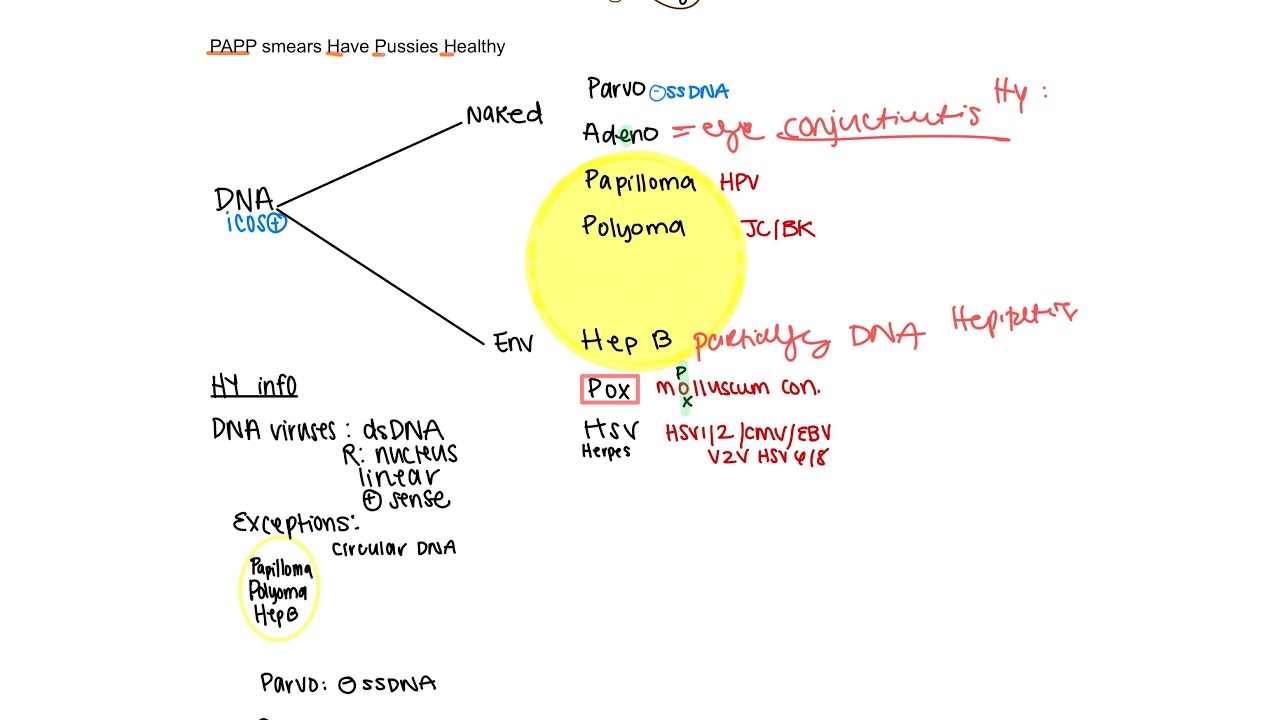 PAPP smears Have Pussies Healthy
Parvo ⊖ssDNA
Naked
Adeno = eye conjunctivitis Hy :
Papilloma HPV
DNA
icos⊕
Polyoma JC/BK
Env
Hep B partially DNA Hepititis
HY info
Pox molluscum con.
P
X
DNA viruses : dsDNA
HSV HSV1/2 /CMV/EBV
Herpes VZV HSV 6/8
R: nucleus
linear
⊕ sense
Exceptions:
circular DNA
Papilloma
Polyoma
Hep B
Parvo: ⊖ ssDNA